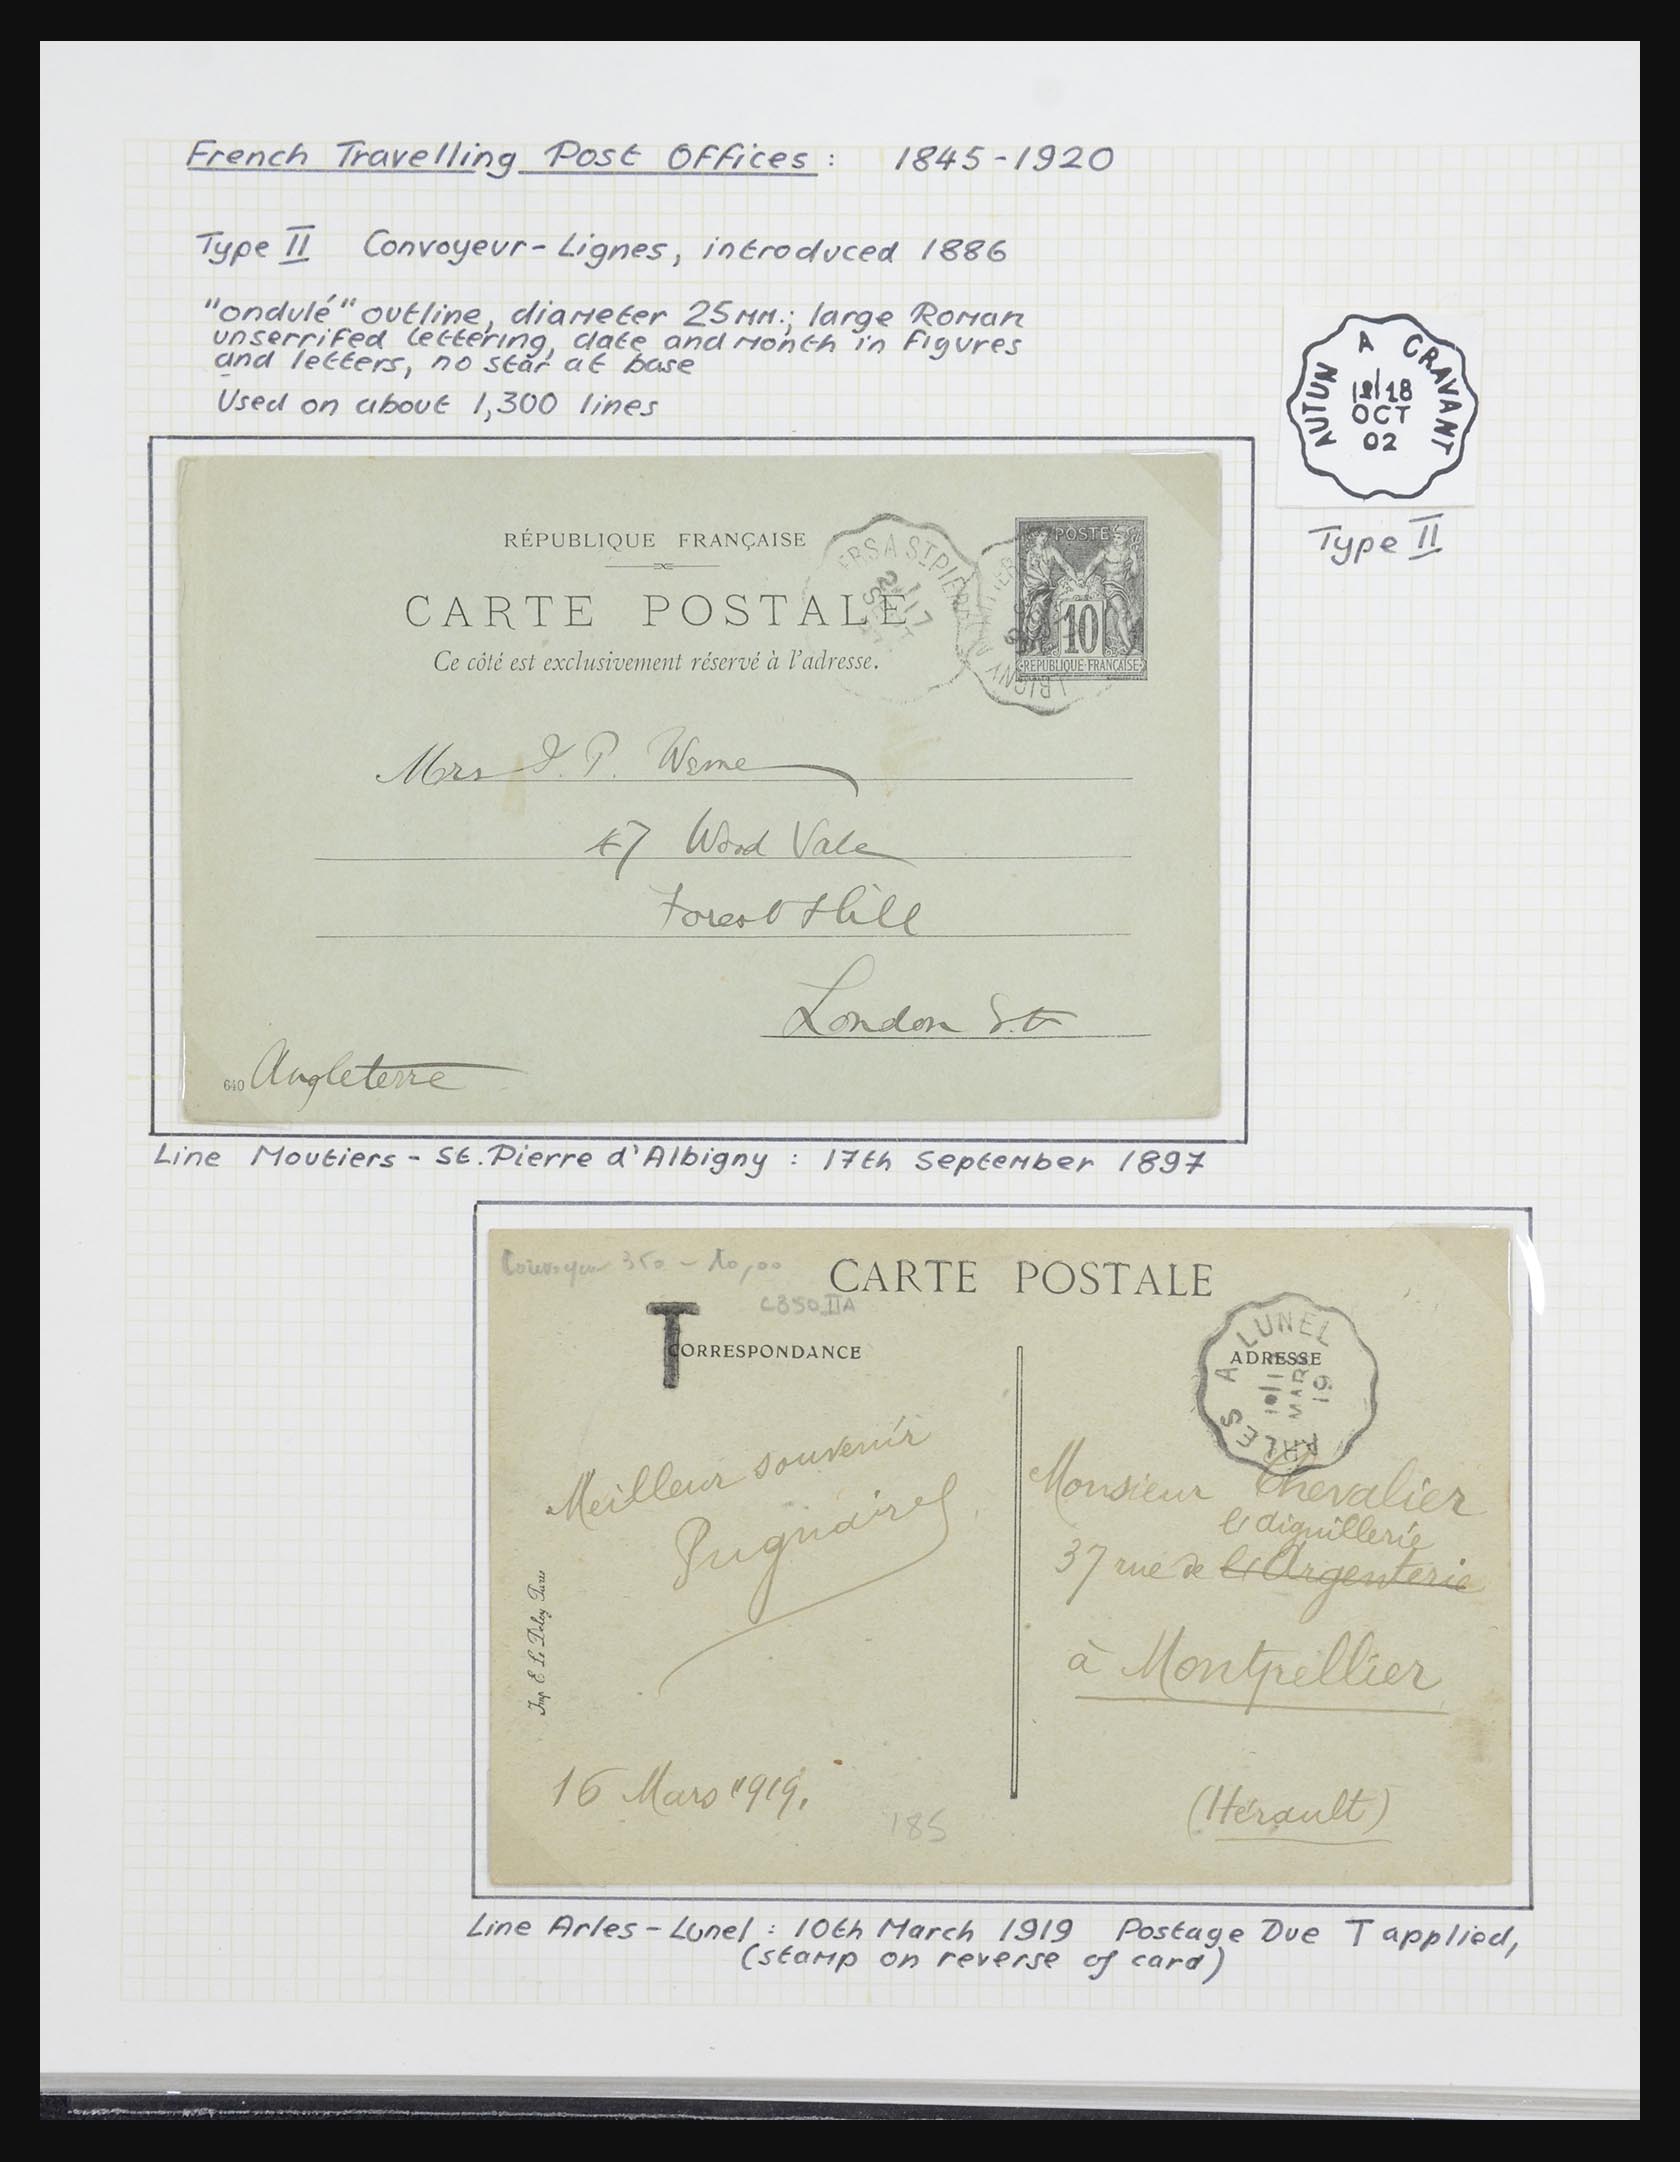 French Travelling Post Offices: 1845-1920
Type II Convoyeur-Lignes, introduced 1886
"ondulé" outline, diameter 25mm.; large Roman
unserrifed lettering, date and month in figures
and letters, no star at base
Used on about 1,300 lines
AUTUN A CRAVANT
OCT
02
Type II
RÉPUBLIQUE FRANÇAISE
CARTE POSTALE
Ce côté est exclusivement réservé à l'adresse.
ERS A ST PIER
17
SEPT
POSTE
10
REPUBLIQUE FRANÇAISE
Mrs
47 Wood Vale
Forest Hill
London
640 Angleterre
Line Moutiers - St. Pierre d'Albigny : 17th September 1897
Convoyeur 350 - 10,00
C350 IIA
CARTE POSTALE
T
CORRESPONDANCE
ADRESSE
ARLES A LUNEL
MARS
19
Meilleur souvenir
Monsieur Chevalier
37 rue de l'Argenterie
à Montpellier
(Hérault)
Imp. E. Le Deley Paris
16 Mars 1919.
185
Line Arles - Lunel : 10th March 1919 Postage Due T applied,
(stamp on reverse of card)